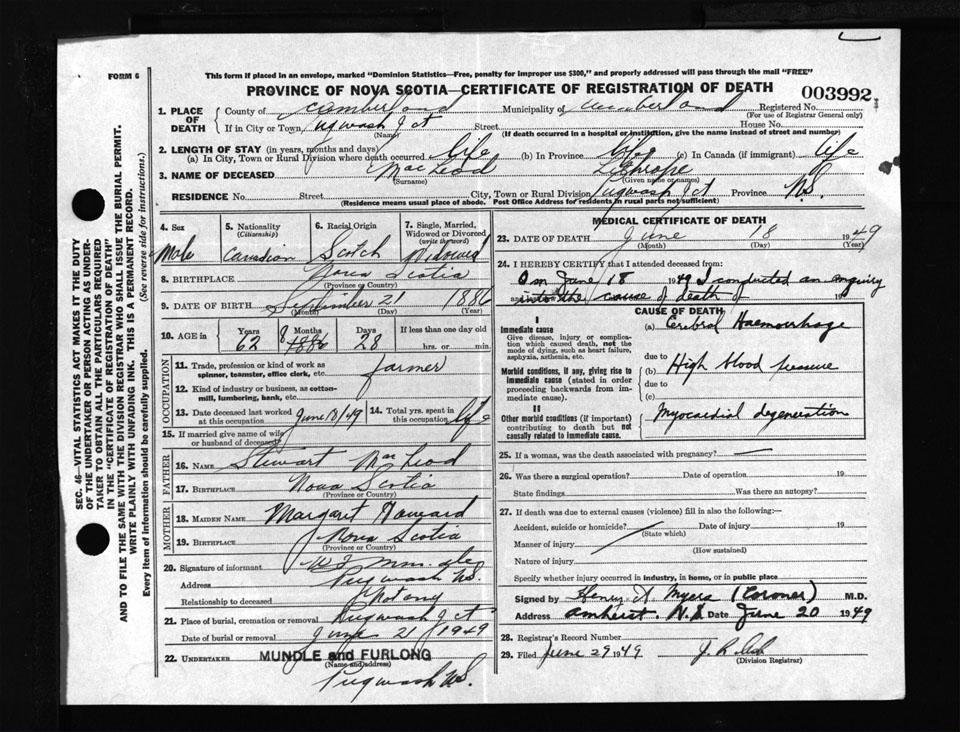 FORM 6
This form if placed in an envelope, marked "Dominion Statistics—Free, penalty for improper use $300," and properly addressed will pass through the mail "FREE"
PROVINCE OF NOVA SCOTIA—CERTIFICATE OF REGISTRATION OF DEATH
003992
1. PLACE OF DEATH
County of Cumberland Municipality of Cumberland Registered No.
(For use of Registrar General only)
If in City or Town Pugwash Jct Street House No.
(Name) (If death occurred in a hospital or institution, give the name instead of street and number)
2. LENGTH OF STAY (in years, months and days)
(a) In City, Town or Rural Division where death occurred life (b) In Province life (c) In Canada (if immigrant) life
3. NAME OF DECEASED MacLeod
(Surname) (Given name or names)
RESIDENCE No. Street City, Town or Rural Division Pugwash Jct Province N.S.
(Residence means usual place of abode. Post Office Address for residents in rural parts not sufficient)
SEC. 46—VITAL STATISTICS ACT MAKES IT THE DUTY
OF THE UNDERTAKER OR PERSON ACTING AS UNDER-
TAKER TO OBTAIN ALL THE PARTICULARS REQUIRED
IN THE "CERTIFICATE OF REGISTRATION OF DEATH"
AND TO FILE THE SAME WITH THE DIVISION REGISTRAR WHO SHALL ISSUE THE BURIAL PERMIT.
WRITE PLAINLY WITH UNFADING INK. THIS IS A PERMANENT RECORD.
Every item of information should be carefully supplied. (See reverse side for instructions.)
4. Sex 5. Nationality (Citizenship) 6. Racial Origin 7. Single, Married, Widowed or Divorced (write the word)
Male Canadian Scotch Widowed
8. BIRTHPLACE Nova Scotia
(Province or Country)
9. DATE OF BIRTH September 21 1886
(Month) (Day) (Year)
10. AGE in Years Months Days If less than one day old
62 8 1886 28 hrs. or min.
OCCUPATION
11. Trade, profession or kind of work as spinner, teamster, office clerk, etc. farmer
12. Kind of industry or business, as cotton-mill, lumbering, bank, etc.
13. Date deceased last worked at this occupation June 18/49 14. Total yrs. spent in this occupation life
15. If married give name of wife or husband of deceased
FATHER
16. NAME Stewart MacLeod
17. BIRTHPLACE Nova Scotia
(Province or Country)
MOTHER
18. MAIDEN NAME Margaret
19. BIRTHPLACE Nova Scotia
(Province or Country)
20. Signature of informant
Address Pugwash N.S.
Relationship to deceased Not any
21. Place of burial, cremation or removal Pugwash Jct
Date of burial or removal June 21 1949
22. UNDERTAKER MUNDLE and FURLONG
(Name and address)
Pugwash N.S.
MEDICAL CERTIFICATE OF DEATH
23. DATE OF DEATH June 18 1949
(Month) (Day) (Year)
24. I HEREBY CERTIFY that I attended deceased from:
On June 18 1949 I conducted an enquiry
into the cause of death of 19
CAUSE OF DEATH
I
Immediate cause
Give disease, injury or complication which caused death, not the mode of dying, such as heart failure, asphyxia, asthenia, etc.
(a) Cerebral Haemorrhage
due to
Morbid conditions, if any, giving rise to immediate cause (stated in order proceeding backwards from immediate cause).
(b) High blood pressure
due to
(c)
II
Other morbid conditions (if important) contributing to death but not causally related to immediate cause.
Myocardial degeneration
25. If a woman, was the death associated with pregnancy?
26. Was there a surgical operation? Date of operation 19
State findings Was there an autopsy?
27. If death was due to external causes (violence) fill in also the following:—
Accident, suicide or homicide? Date of injury 19
(State which)
Manner of injury
(How sustained)
Nature of injury
Specify whether injury occurred in industry, in home, or in public place
Signed by Henry A. Myers (Coroner) M.D.
Address Amherst. N.S. Date June 20 1949
28. Registrar's Record Number
29. Filed June 29 1949
(Division Registrar)